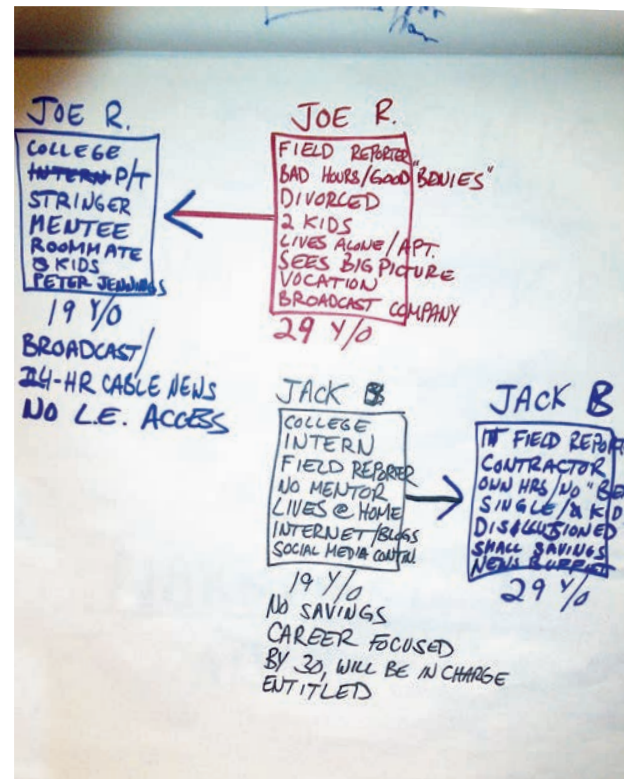 JOE R.
COLLEGE
INTERN P/T
STRINGER
MENTEE
ROOMMATE
KIDS
PETER JENNINGS
19 Y/O
BROADCAST/
24-HR CABLE NEWS
NO L.E. ACCESS
JOE R.
FIELD REPORTER
BAD HOURS/GOOD "BENIES"
DIVORCED
2 KIDS
LIVES ALONE/APT.
SEES BIG PICTURE
VOCATION
BROADCAST COMPANY
29 Y/O
JACK B
COLLEGE
INTERN
FIELD REPORTER
NO MENTOR
LIVES @ HOME
INTERNET/BLOGS
SOCIAL MEDIA CONTIN.
19 Y/O
NO SAVINGS
CAREER FOCUSED
BY 30, WILL BE IN CHARGE
ENTITLED
JACK B
FIELD REPORT
CONTRACTOR
OWN HRS/NO "BE
SINGLE/ KID
DISALLUSIONED
SMALL SAVINGS
NEWS
29 Y/O